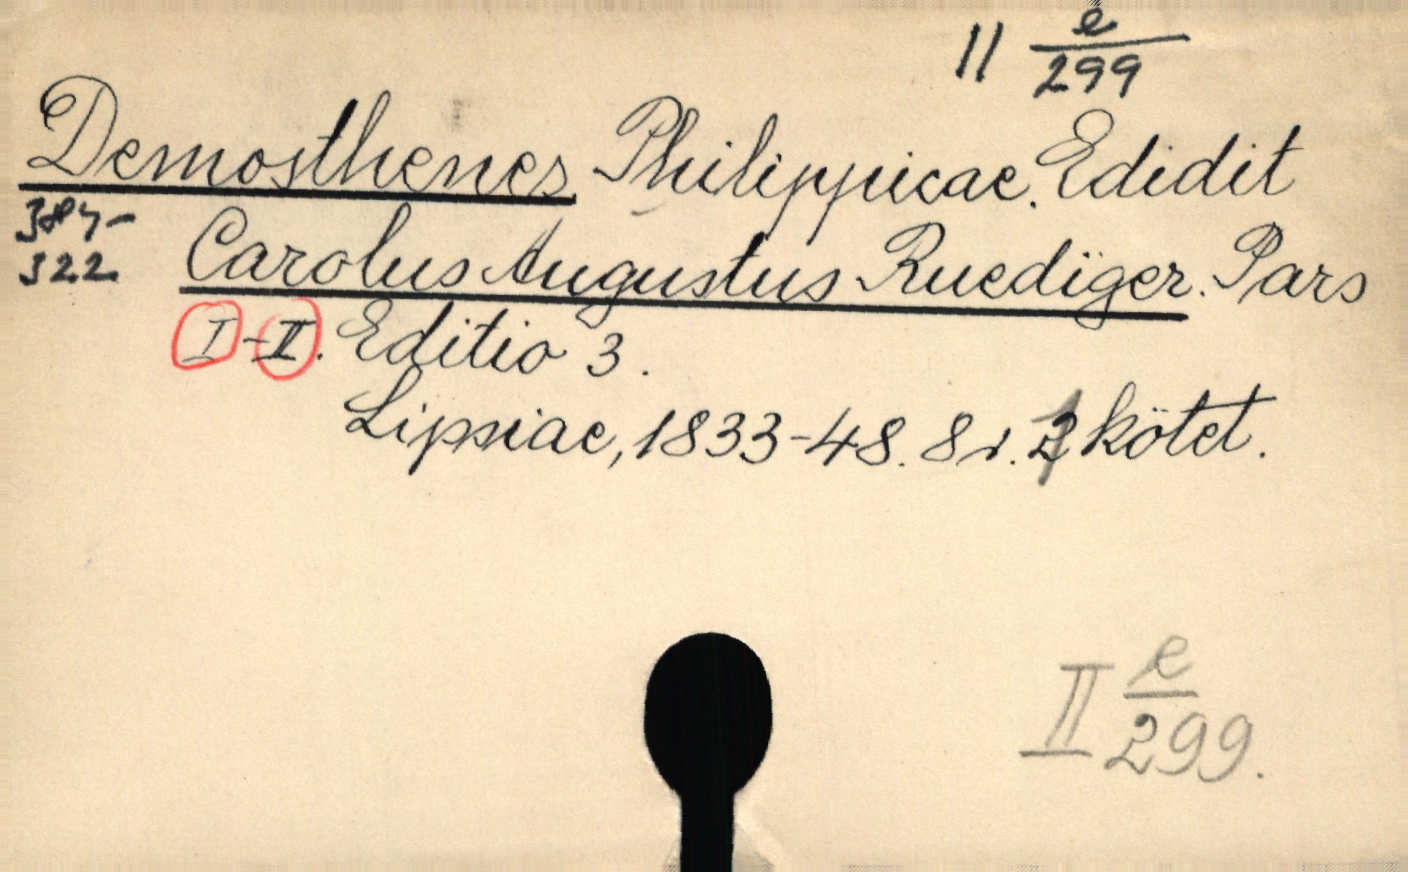 II e
299
Demosthenes Philippicae. Edidit
384-
322
Carolus Augustus Ruediger. Pars
I-II. Editio 3.
Lipsiae, 1833-48. 8r. 1 kötet.
II e
299.